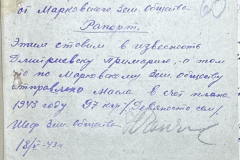 от Марковского Зем. общества
Рапорт.
Этим ставим в известность
Дмитриевску Примарию, о том
что по Марковскому Зем. обществу
отправлено Масла в счет плана
1943 году 97 кгр / Девяносто сем /
Шеф Зем. общества